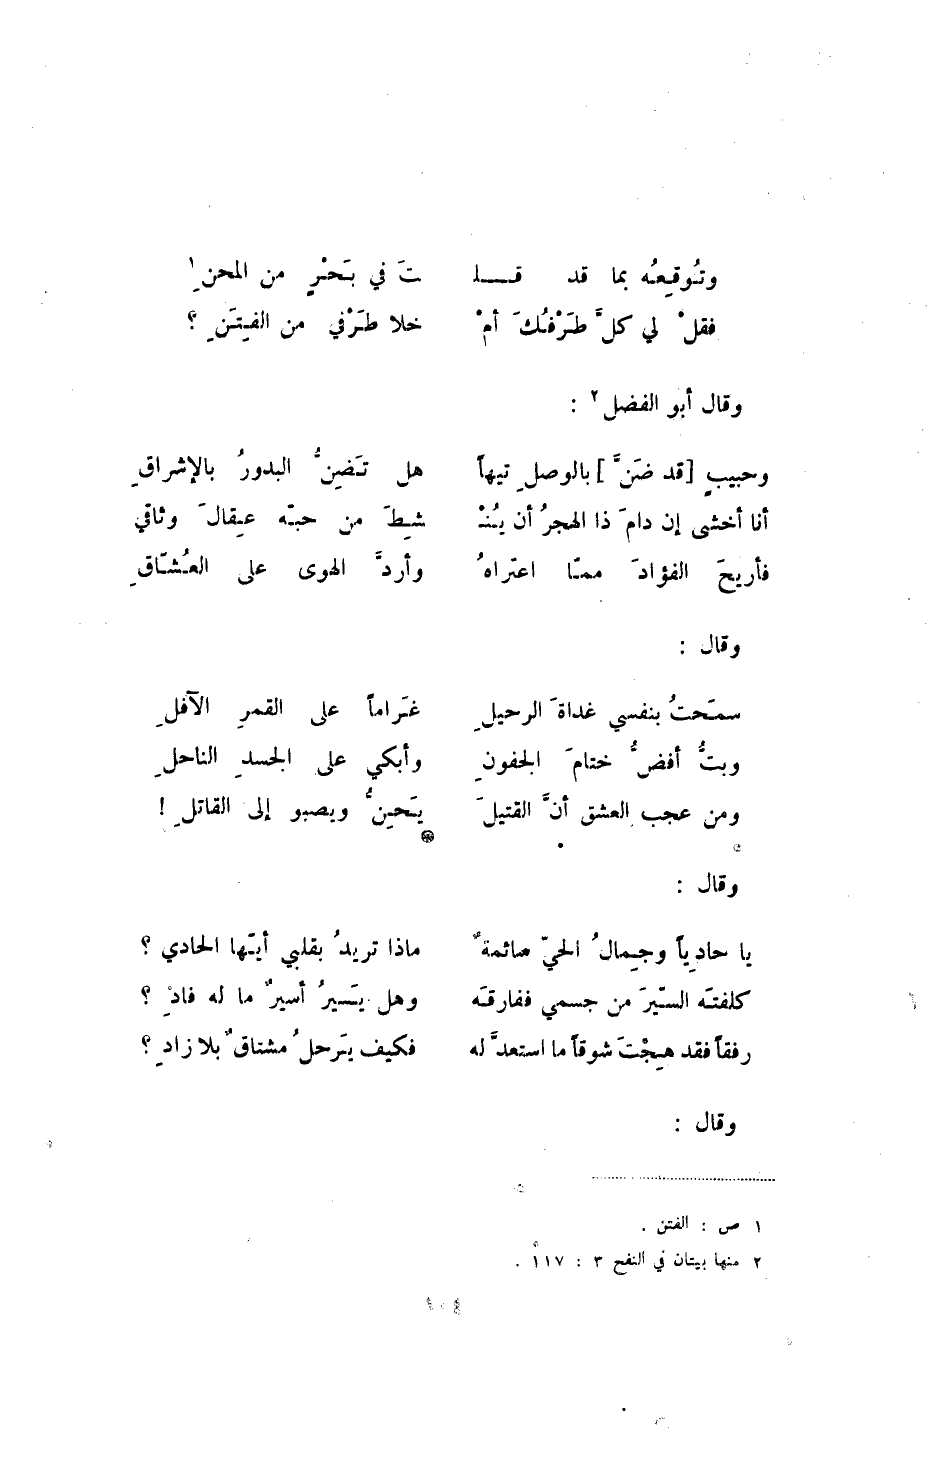 وتُوقِعُه بما قد قـــلـ ـتَ في بَحْرٍ من المحنِ ١
فقلْ لي كلَّ طَرْفُكَ أمْ خلا طَرْفي من الفِتَنِ ؟
وقال أبو الفضل ٢ :
وحبيبٍ [ قد ضَنَّ ] بالوصلِ تيهاً هل تَضِنُّ البدورُ بالإشراقِ
أنا أخشى إن دامَ ذا الهجرُ أن يُنْـ ـشِطَ من حبّه عِقالَ وثاقي
فأريحَ الفؤادَ ممّا اعتراهُ وأردَّ الهوى على العُشّاقِ
وقال :
سمَحتُ بنفسي غداةَ الرحيلِ غَراماً على القمرِ الآفلِ
وبتُّ أفضُّ ختامَ الجفونِ وأبكي على الجسدِ الناحلِ
ومن عجبِ العشق أنَّ القتيلَ يَحِنُّ ويصبو إلى القاتلِ !
وقال :
يا حادِياً وجِمالُ الحيّ سائمةٌ ماذا تريدُ بقلبي أيّها الحادي ؟
كلفتَه السَّيرَ من جسمي ففارقَه وهل يَسيرُ أسيرٌ ما له فادِ ؟
رفقاً فقد هِجْتَ شوقاً ما استعدَّ له فكيف يَرحلُ مشتاقٌ بلا زادِ ؟
وقال :
١ ص : الفتن .
٢ منها بيتان في النفح ٣ : ١١٧ .